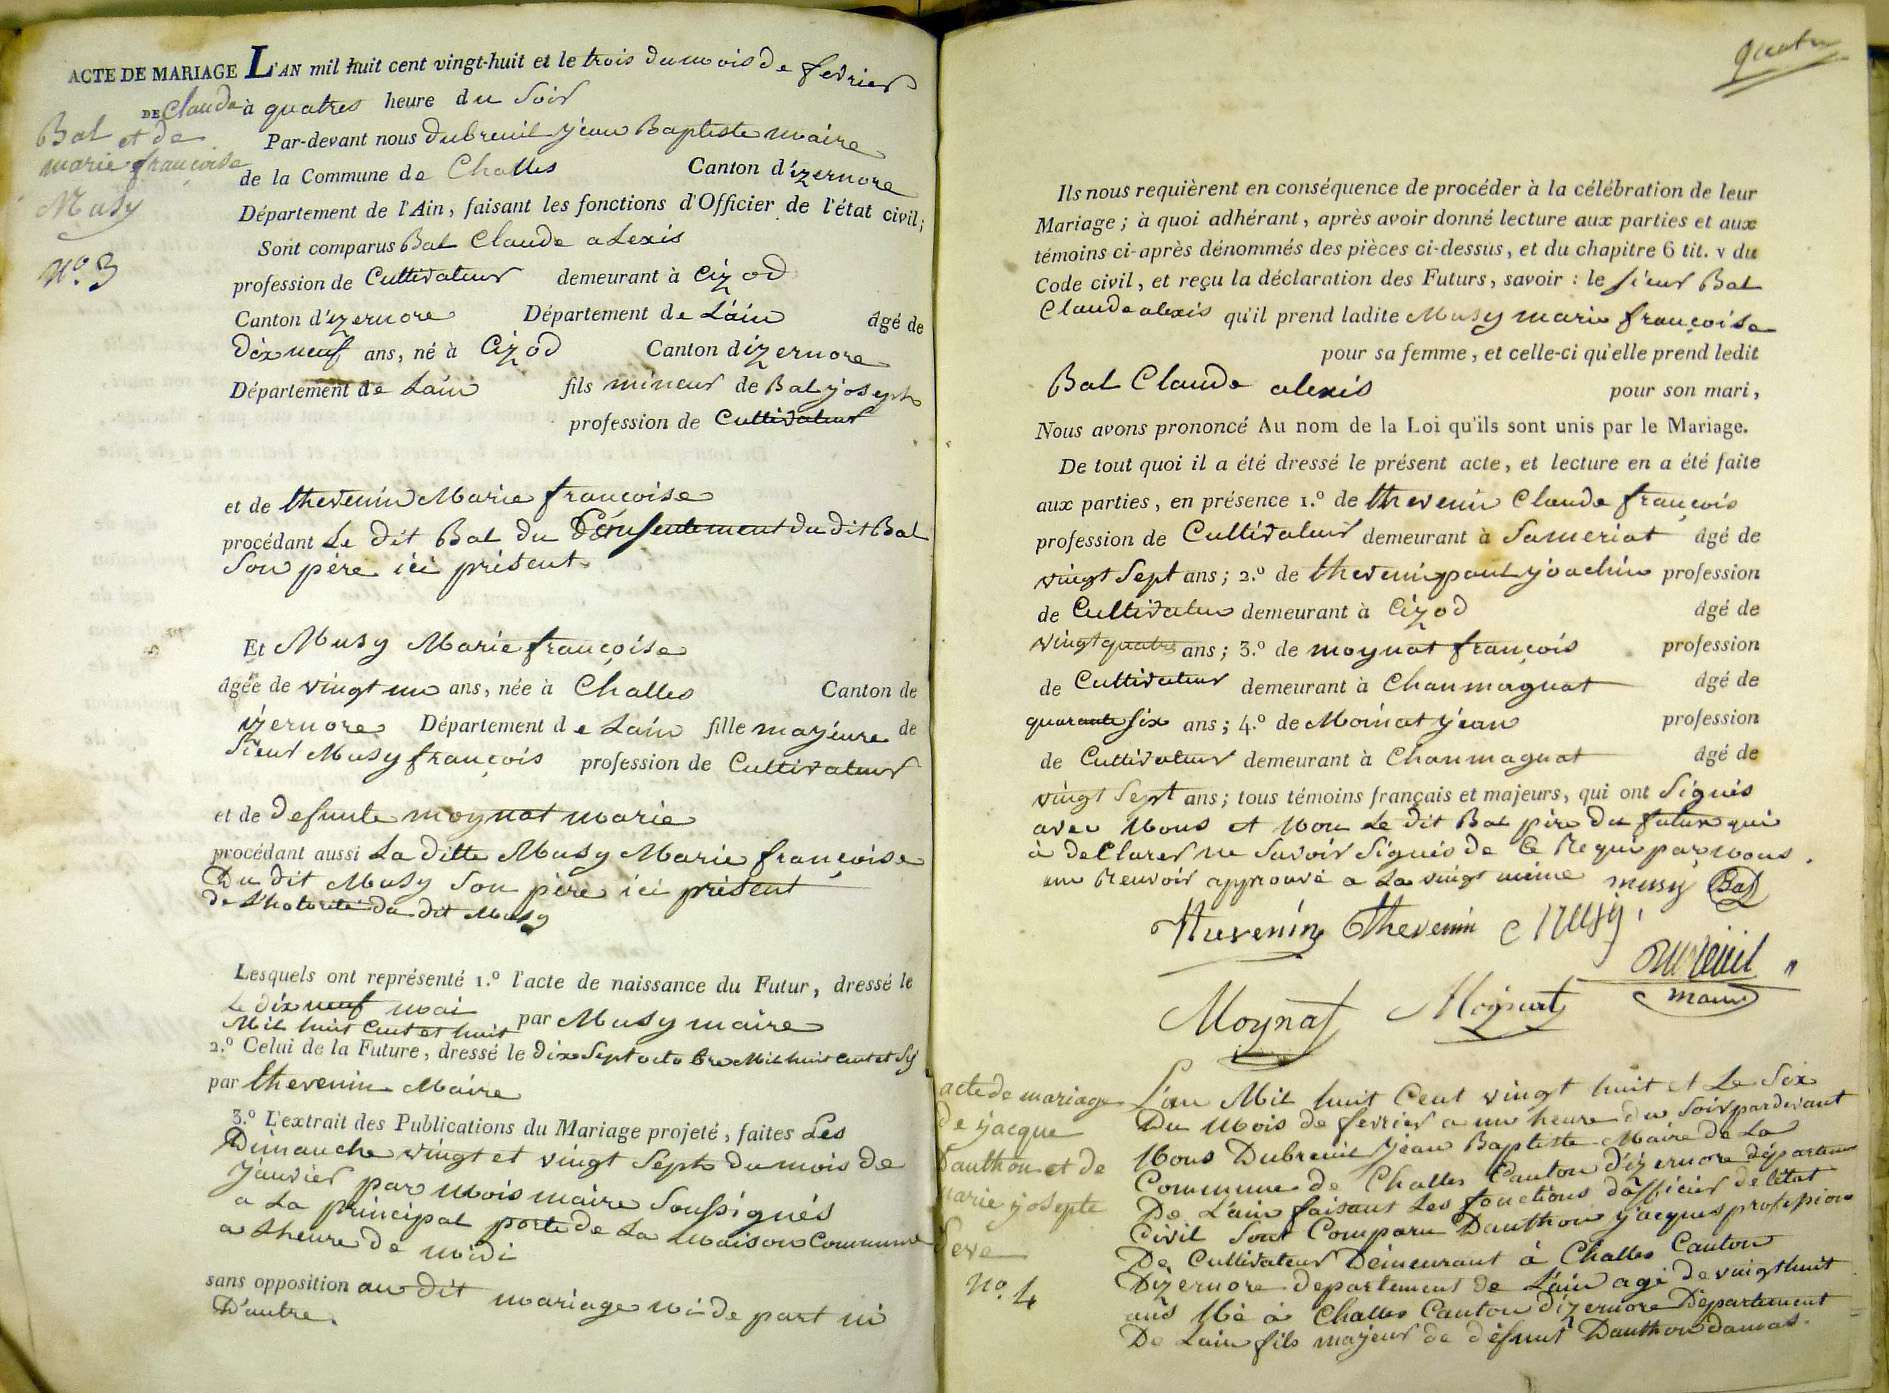 ACTE DE MARIAGE L'AN mil huit cent vingt-huit et le trois du mois de fevrier
DE Claude
Bal et de
marie françoise
Musy
No. 3
à quatres heure du Soir
Par-devant nous dubreuil jean Baptiste maire
de la Commune de Challes Canton d'izernore
Département de l'Ain, faisant les fonctions d'Officier de l'état civil;
Sont comparus Bal Claude alexis
profession de Cultivateur demeurant à Cizod
Canton d'izernore Département de Lain âgé de
dix neuf ans, né à Cizod Canton dizernore
Département de Lain fils mineur de Bal joseph
profession de Cultivateur
et de thevenin Marie françoise
procédant Le dit Bal du Consentement du dit Bal
Son père ici présent
Et Musy Marie françoise
âgée de vingt un ans, née à Challes Canton de
izernore Département de Lain fille majeure de
Sieur Musy françois profession de Cultivateur
et de defunte moynat marie
procédant aussi La ditte Musy Marie françoise
Du dit Musy Son père ici présent
de Lhotorité du dit Musy
Lesquels ont représenté 1.º l'acte de naissance du Futur, dressé le
Le dix neuf mai
Mil huit Cent et huit par Musy maire
2.º Celui de la Future, dressé le dix Sept octobre Mil huit Cent et Sy
par thevenin Maire
3.º L'extrait des Publications du Mariage projeté, faites Les
Dimanche vingt et vingt Sept du mois de
Janvier par mois maire Soussignés
a La principal porte de La maison Commune
a Lheure de midi
sans opposition au dit mariage ni de part ni
D'autre.
quatre
Ils nous requièrent en conséquence de procéder à la célébration de leur
Mariage; à quoi adhérant, après avoir donné lecture aux parties et aux
témoins ci-après dénommés des pièces ci-dessus, et du chapitre 6 tit. v du
Code civil, et reçu la déclaration des Futurs, savoir : le Sieur Bal
Claude alexis qu'il prend ladite Musy marie françoise
pour sa femme, et celle-ci qu'elle prend ledit
Bal Claude alexis pour son mari,
Nous avons prononcé Au nom de la Loi qu'ils sont unis par le Mariage.
De tout quoi il a été dressé le présent acte, et lecture en a été faite
aux parties, en présence 1.º de thevenin Claude françois
profession de Cultivateur demeurant à Sameriat âgé de
vingt Sept ans; 2.º de thevenin paul joachin profession
de Cultivateur demeurant à Cizod âgé de
vingt quatre ans; 3.º de moynat françois profession
de Cultivateur demeurant à Chaumagnat âgé de
quarante Six ans; 4.º de Moinat jean profession
de Cultivateur demeurant à Chaumagnat âgé de
vingt Sept ans; tous témoins français et majeurs, qui ont Signés
avec Nous et Non Le dit Bal père du futur qui
à declarer ne Savoir Signés de Ce Requi par nous.
un Renvoir approuvé a La vingt unime musy Bal
Thevenin Thevenin Musy
Dubreuil
maire
Moynat Moynat
acte de mariage
de jacque
Dauthon et de
marie josepte
Seve
No. 4
L'an Mil huit Cent vingt huit et Le Six
Du Mois de fevrier a une heure du Soir pardevant
Nous Dubreuil Jean Baptiste Maire de La
Commune de Challes Canton d'izernore départem
De L'ain faisant Les fonctions d'officier de l'état
Civil Sont Comparu Dauthon jacques profession
De Cultivateur Demeurant à Challes Canton
Dizernore departement de L'ain agé de vingt huit
ans Né à Challes Canton dizernore Département
De Lain fils majeur de défunt Dauthon damas.